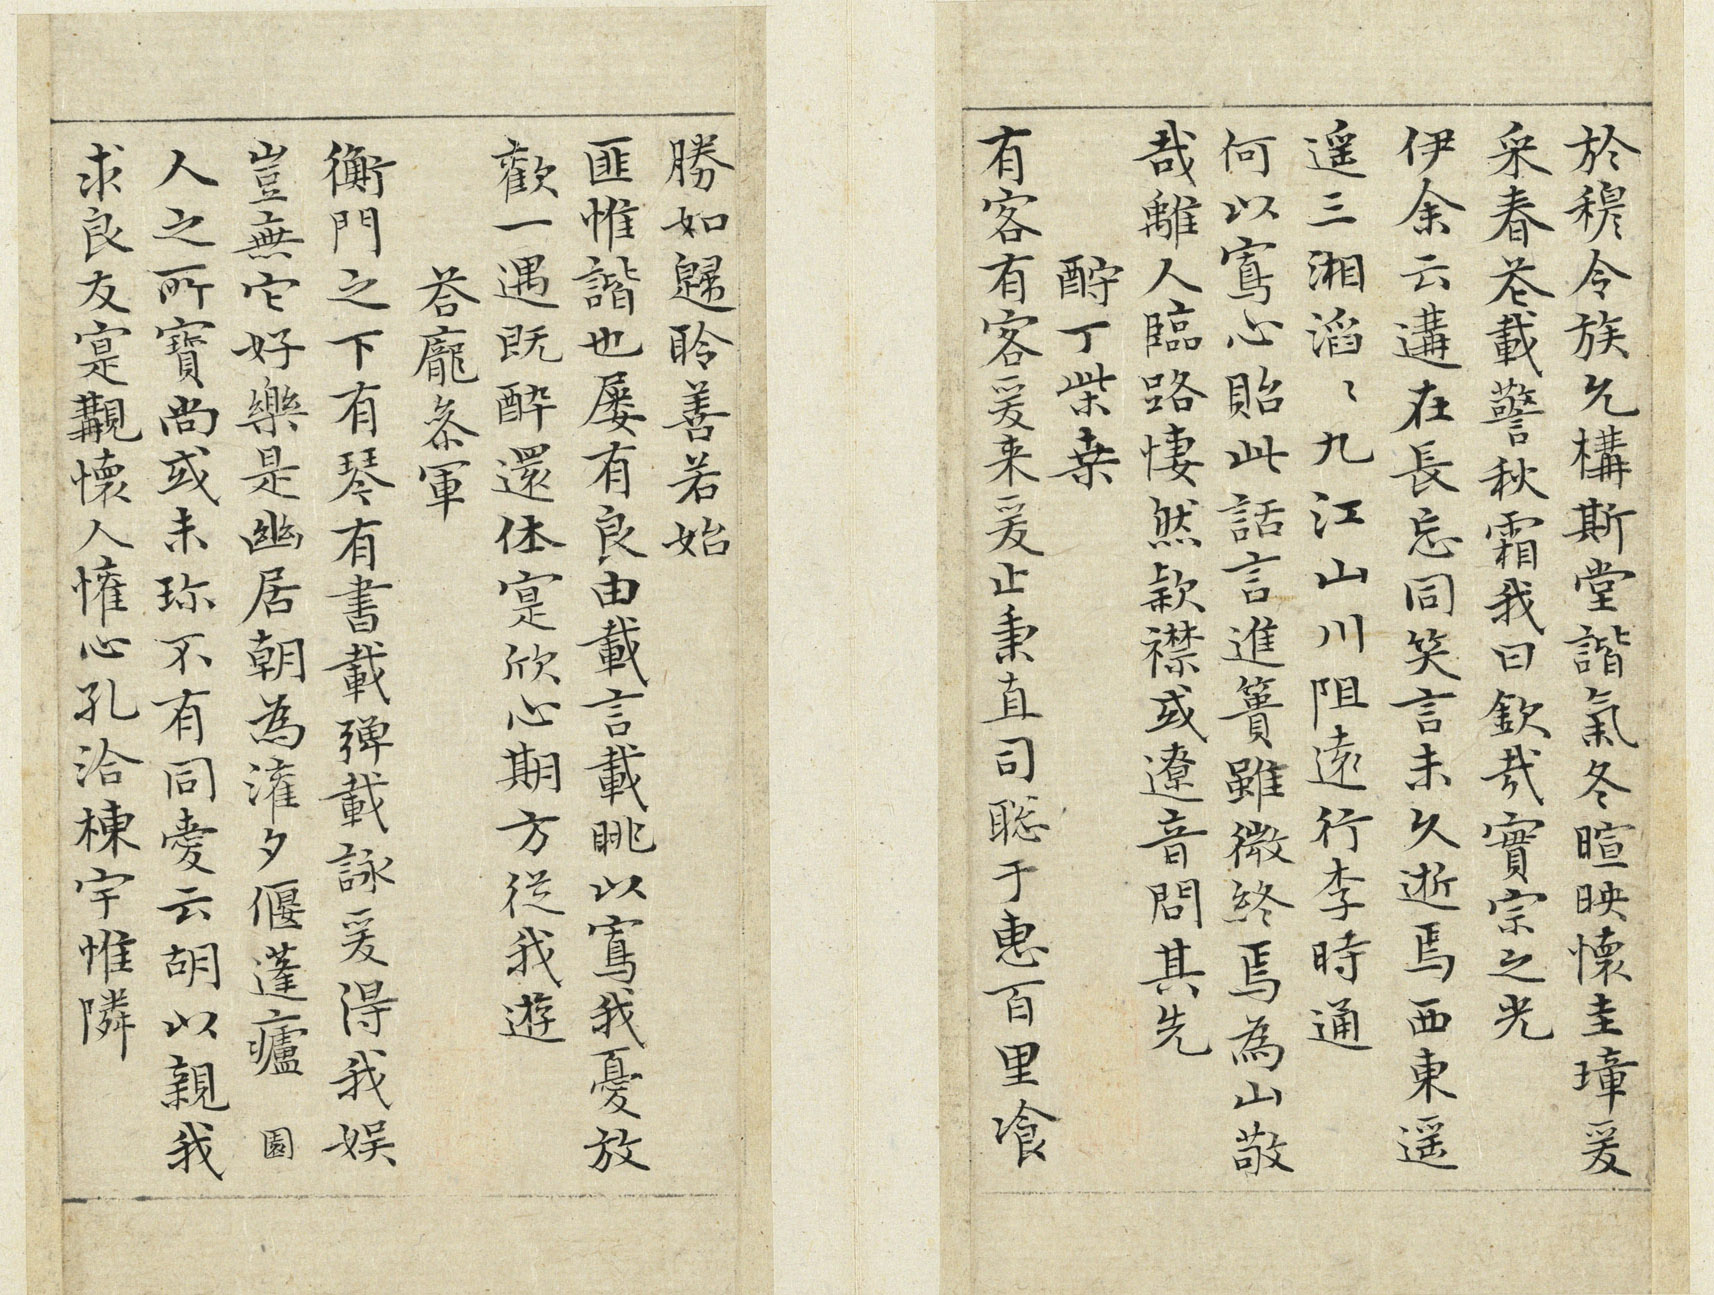 於穆令族允構斯堂諧氣冬暄映懷圭璋爰
采春苍載警秋霜我曰欽哉實宗之光
伊余云遘在長忘同笑言未久逝焉西東遥
遥三湘滔〻九江山川阻遠行李時通
何以寫心貽此話言進簣雖微終焉為山敬
哉離人臨路悽然款襟或遼音問其先
酧丁柴桑
有客有客爰来爰止秉直司聡于惠百里飡
勝如歸聆善若始
匪惟諧也屡有良由載言載眺以寫我憂放
歡一遇既酔還休寔欣心期方從我遊
荅龐叅軍
衡門之下有琴有書載弾載詠爰得我娱
豈無它好樂是幽居朝為灌夕偃蓬廬 園
人之所寶尚或未珎不有同愛云胡以親我
求良友寔覯懷人懽心孔洽棟宇惟隣